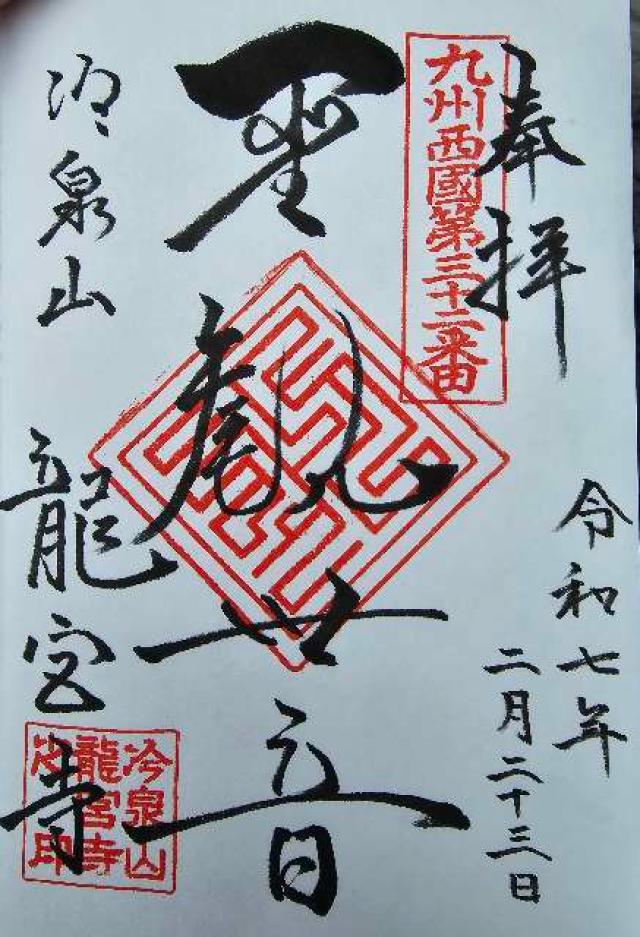 奉拝
九州西國第三十二番
令和七年
二月二十三日
聖観世音
冷泉山
龍宮寺
冷泉山
龍宮寺